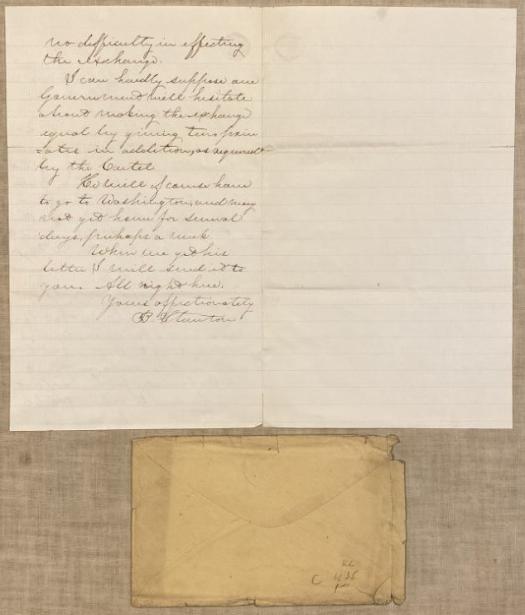 no difficulty in effecting
the exchange.
I can hardly suppose our
Government will hesitate
about making the exchange
equal by giving two priv-
ates in addition, as required
by the Cartel.
He will of course have
to go to Washington, and may
not get home for several
days, perhaps a week.
When we get his
letter I will send it to
you. All right here.
Yours affectionately
B Stanton
C